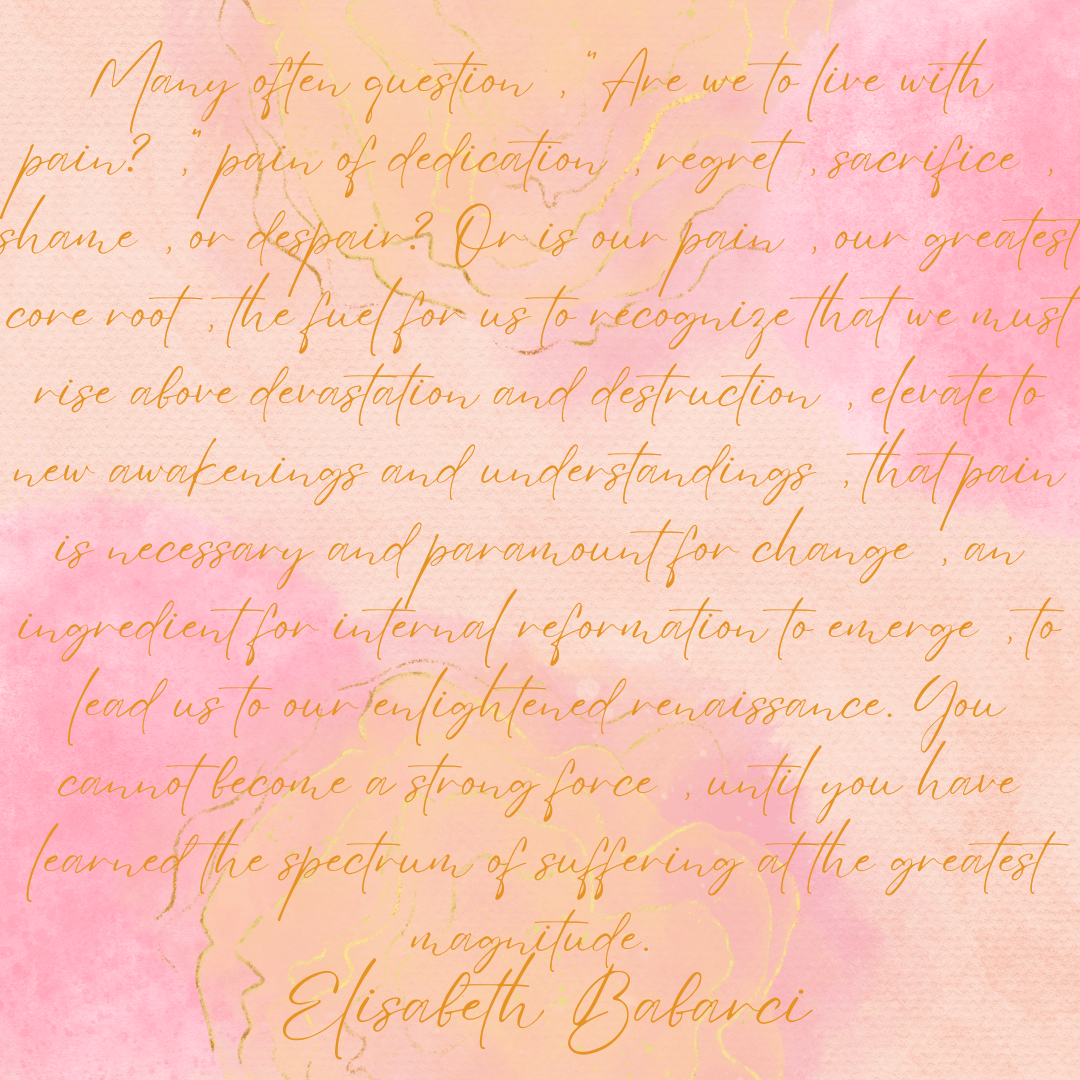 Many often question , "Are we to live with
pain? ," pain of dedication , regret , sacrifice ,
shame , or despair? Or is our pain , our greatest
core root , the fuel for us to recognize that we must
rise above devastation and destruction , elevate to
new awakenings and understandings , that pain
is necessary and paramount for change , an
ingredient for internal reformation to emerge , to
lead us to our enlightened renaissance. You
cannot become a strong force , until you have
learned the spectrum of suffering at the greatest
magnitude.
Elisabeth Babarci